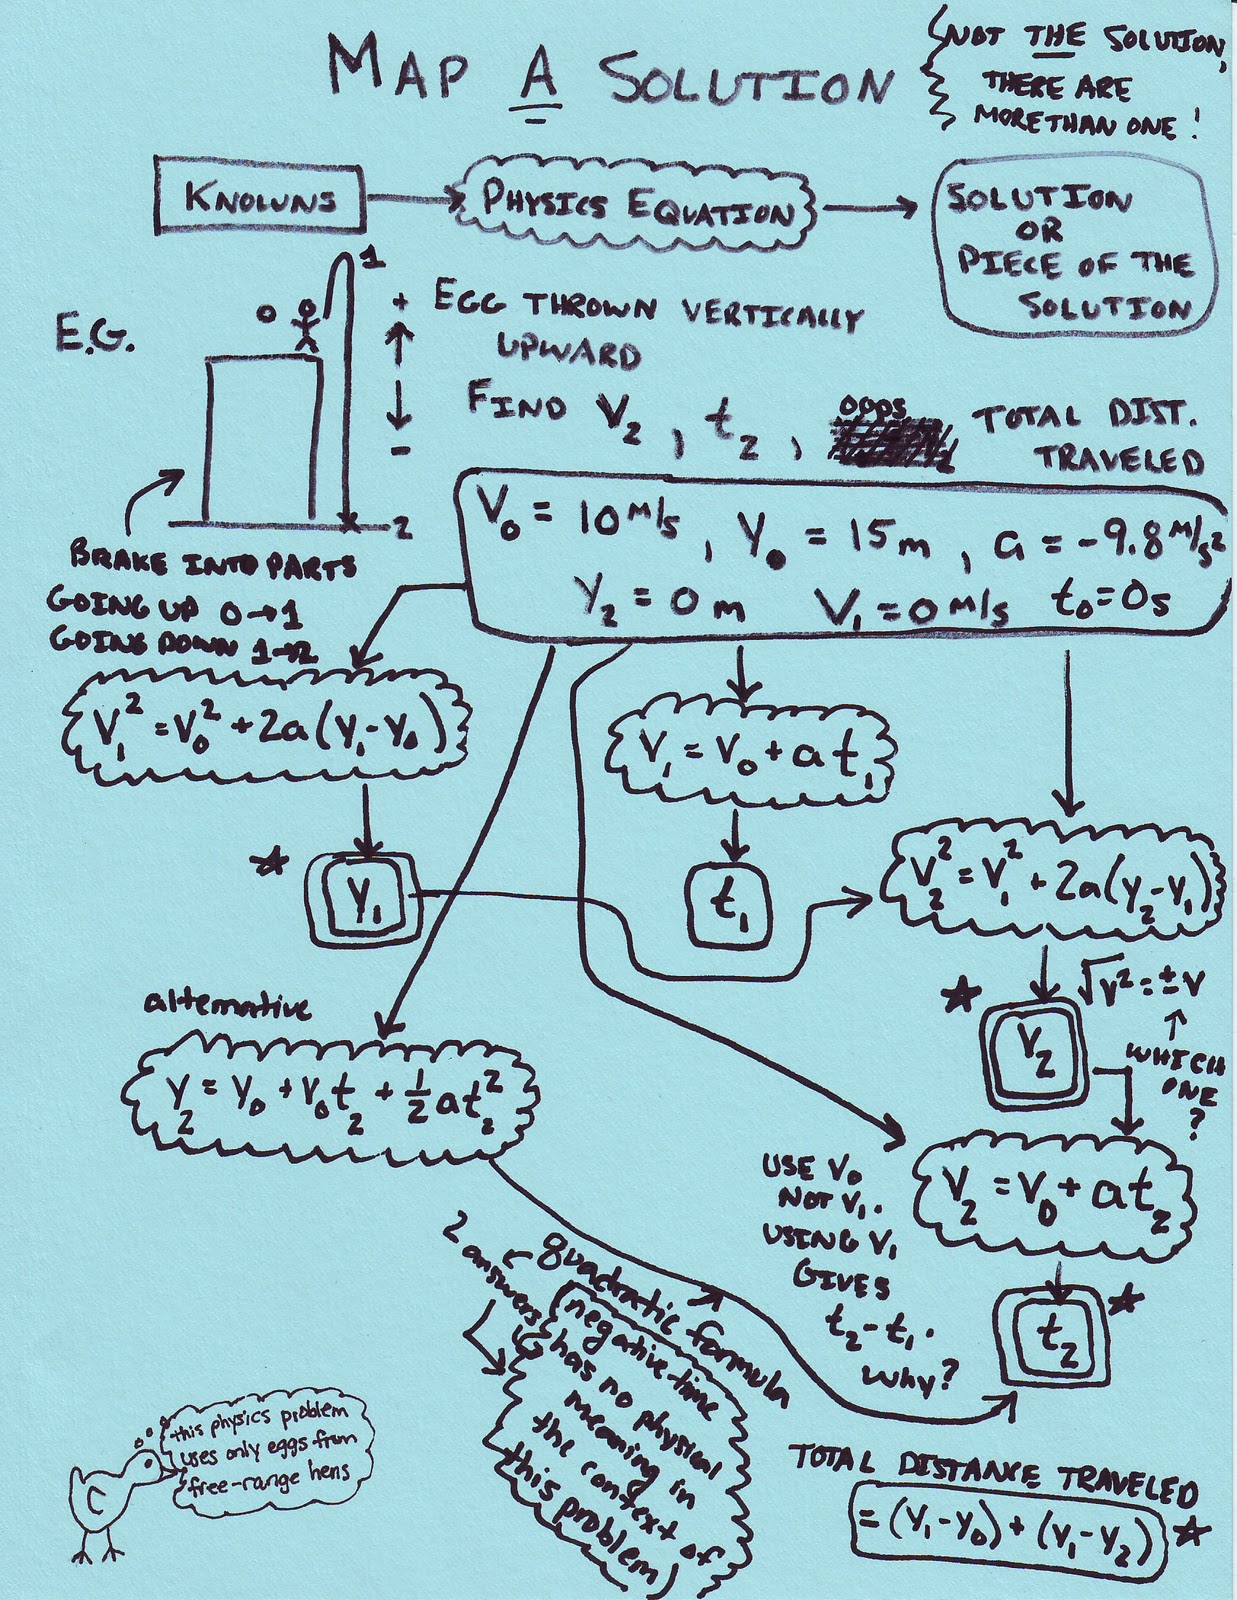 MAP A SOLUTION
NOT THE SOLUTION,
THERE ARE
MORE THAN ONE!
KNOWNS
PHYSICS EQUATION
SOLUTION
OR
PIECE OF THE
SOLUTION
E.G.
0
1
+
-
2
EGG THROWN VERTICALLY
UPWARD
FIND V₂, t₂,
oops
TOTAL DIST.
TRAVELED
BRAKE INTO PARTS
GOING UP 0→1
GOING DOWN 1→2
V₀ = 10 m/s, Y₀ = 15m, a = -9.8 m/s²
Y₂ = 0m V₁ = 0 m/s t₀ = 0s
V₁² = V₀² + 2a(Y₁-Y₀)
V₁ = V₀ + at₁
V₂² = V₁² + 2a(Y₂-Y₁)
Y₁
t₁
√V² = ±V
WHICH
ONE
?
V₂
alternative
Y₂ = Y₀ + V₀t₂ + ½at₂²
V₂ = V₀ + at₂
USE V₀
NOT V₁.
USING V₁
GIVES
t₂-t₁.
Why?
t₂
quadratic formula
2
answers
(negative time
has no physical
meaning in
the context of
this problem)
this physics problem
uses only eggs from
free-range hens
TOTAL DISTANCE TRAVELED
= (Y₁-Y₀) + (Y₁-Y₂)